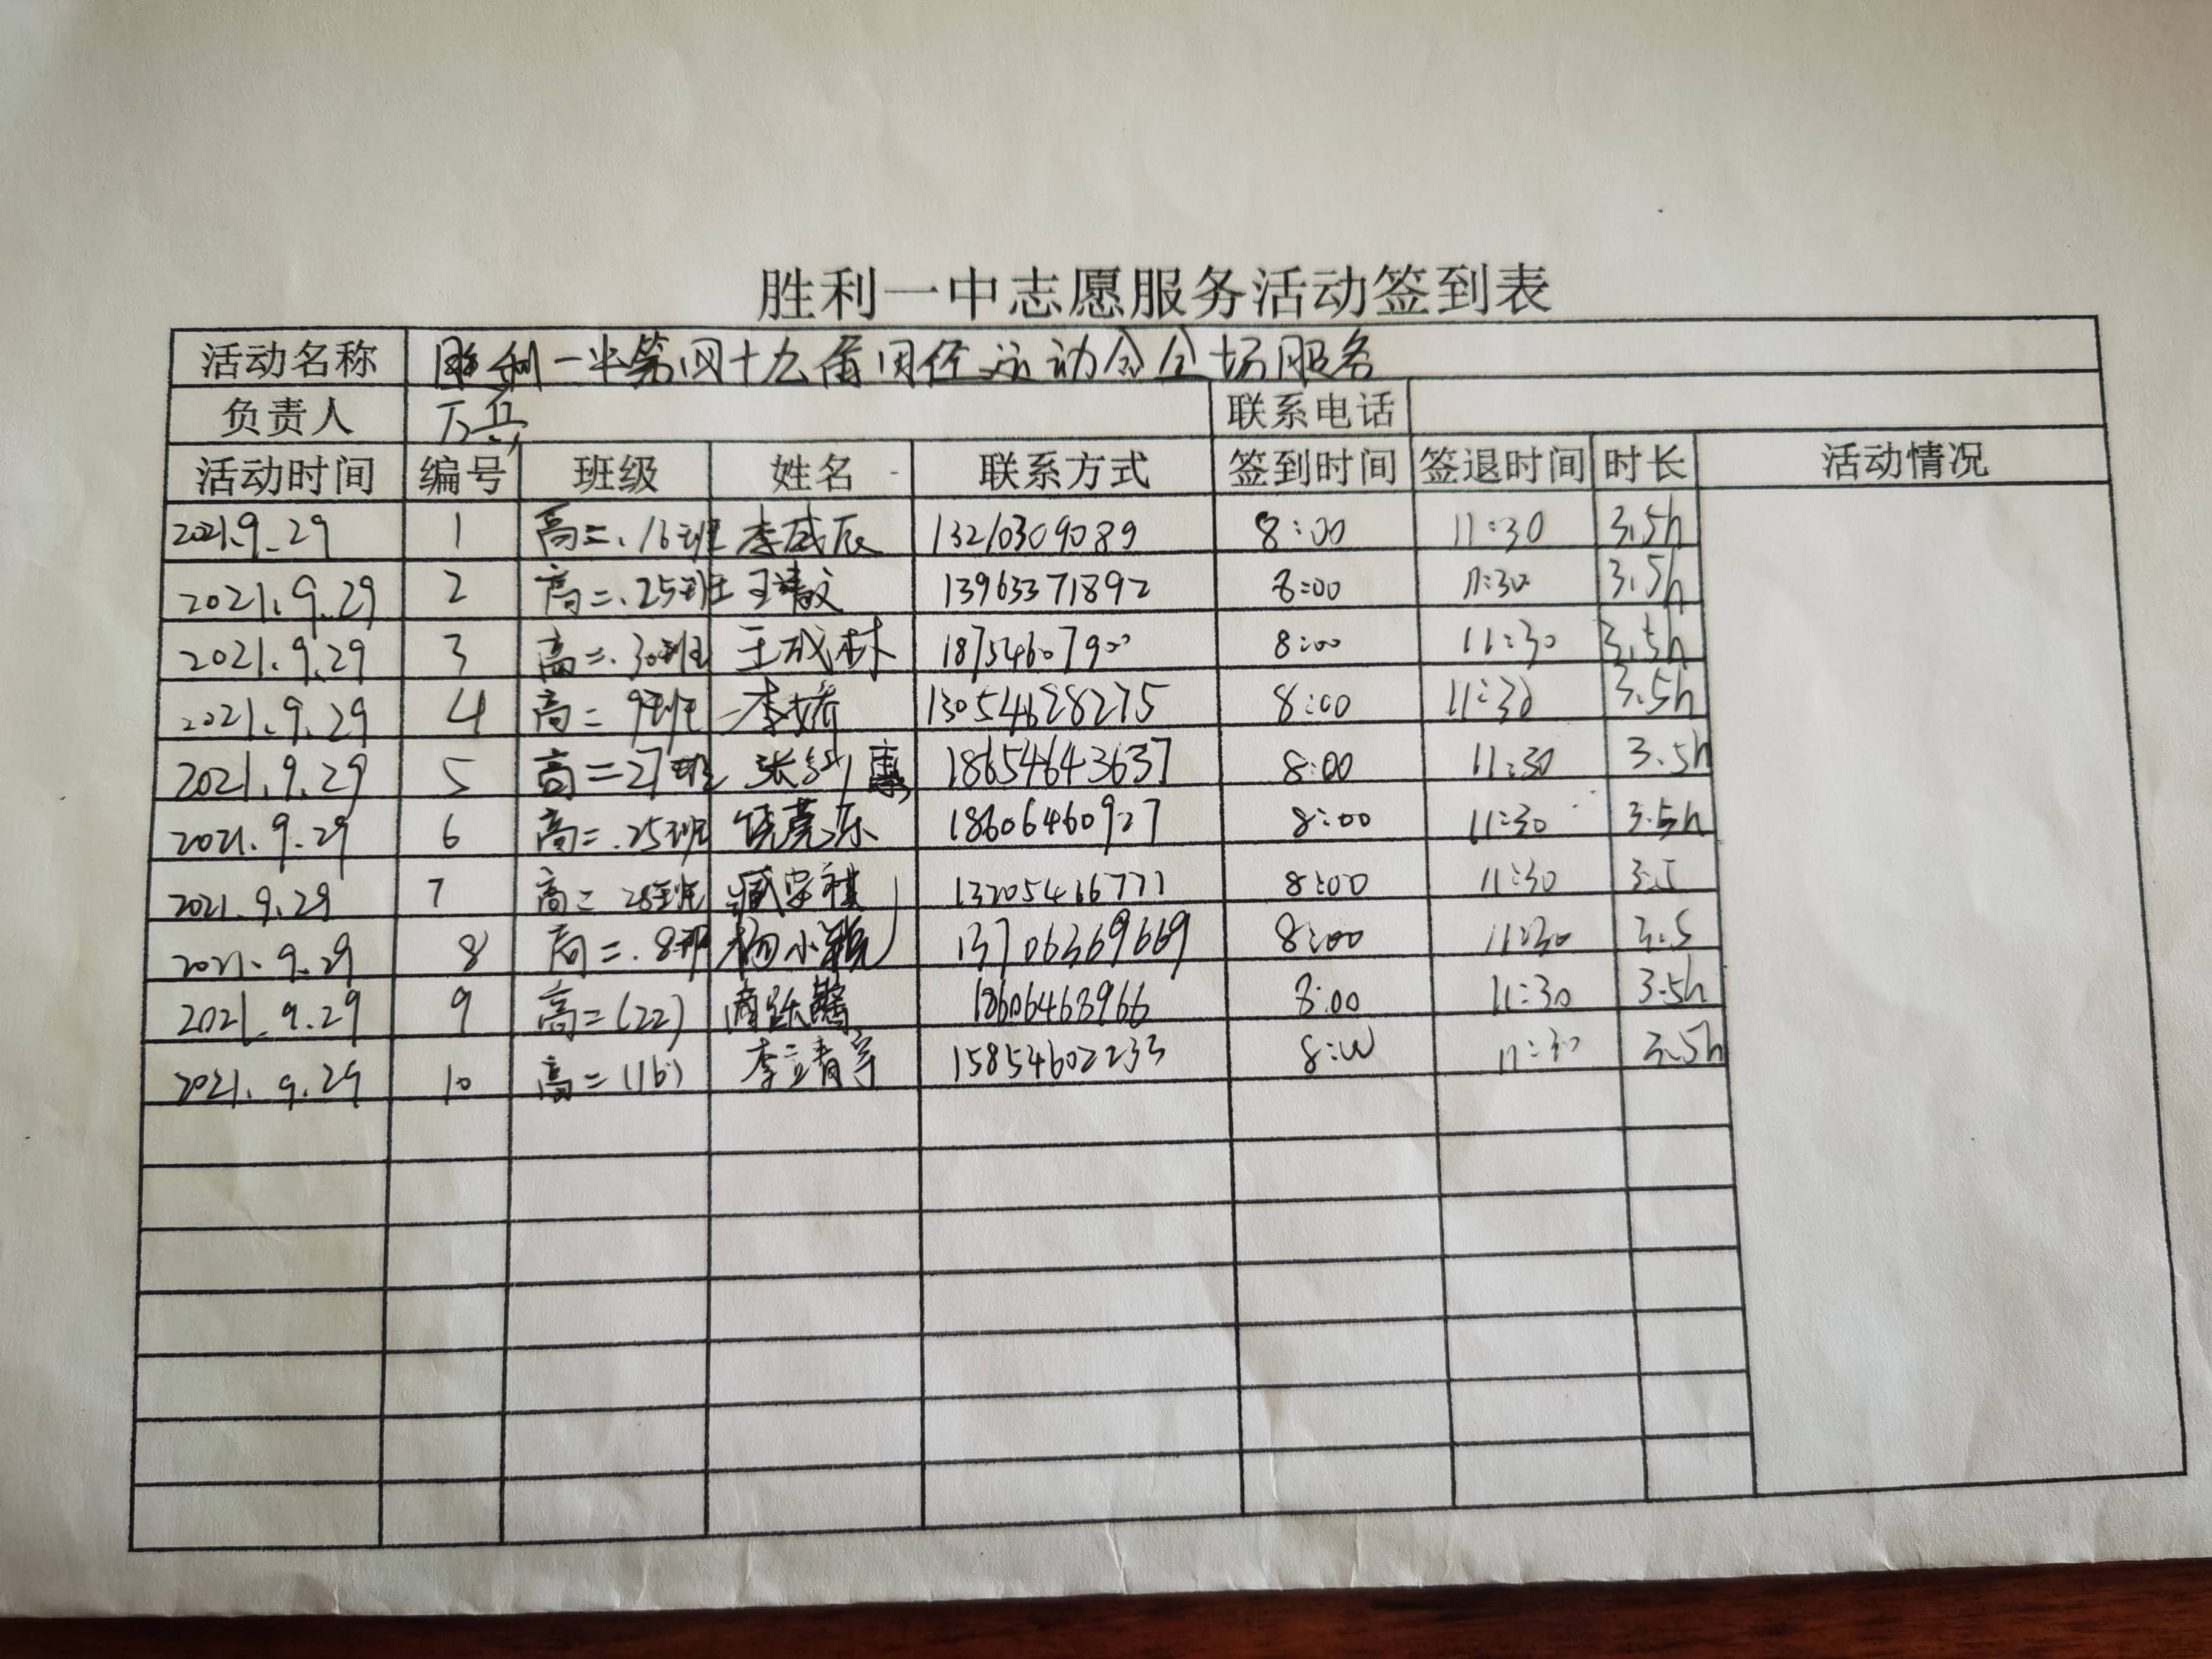 胜利一中志愿服务活动签到表
活动名称 胜利一中第四十九届田径运动会全场服务
负责人 万兵 联系电话
活动时间 编号 班级 姓名 联系方式 签到时间 签退时间 时长 活动情况
2021.9.29 1 高二.16班 李成辰 13210309089 8:00 11:30 3.5h
2021.9.29 2 高二.25班 王靖文 13963371892 8:00 11:30 3.5h
2021.9.29 3 高二.30班 王成林 18754607900 8:00 11:30 3.5h
2021.9.29 4 高二 9班 李娇 13054628275 8:00 11:30 3.5h
2021.9.29 5 高二27班 张 惠 18654643637 8:00 11:30 3.5h
2021.9.29 6 高二.25班 18606460927 8:00 11:30 3.5h
2021.9.29 7 高二 28班 臧安祺 13205466777 8:00 11:30 3.5
2021.9.29 8 高二.8班 杨小 13706369669 8:00 11:30 3.5
2021.9.29 9 高二(22) 18606468966 8:00 11:30 3.5h
2021.9.29 10 高二(16) 李 15854602233 8:00 11:30 3.5h